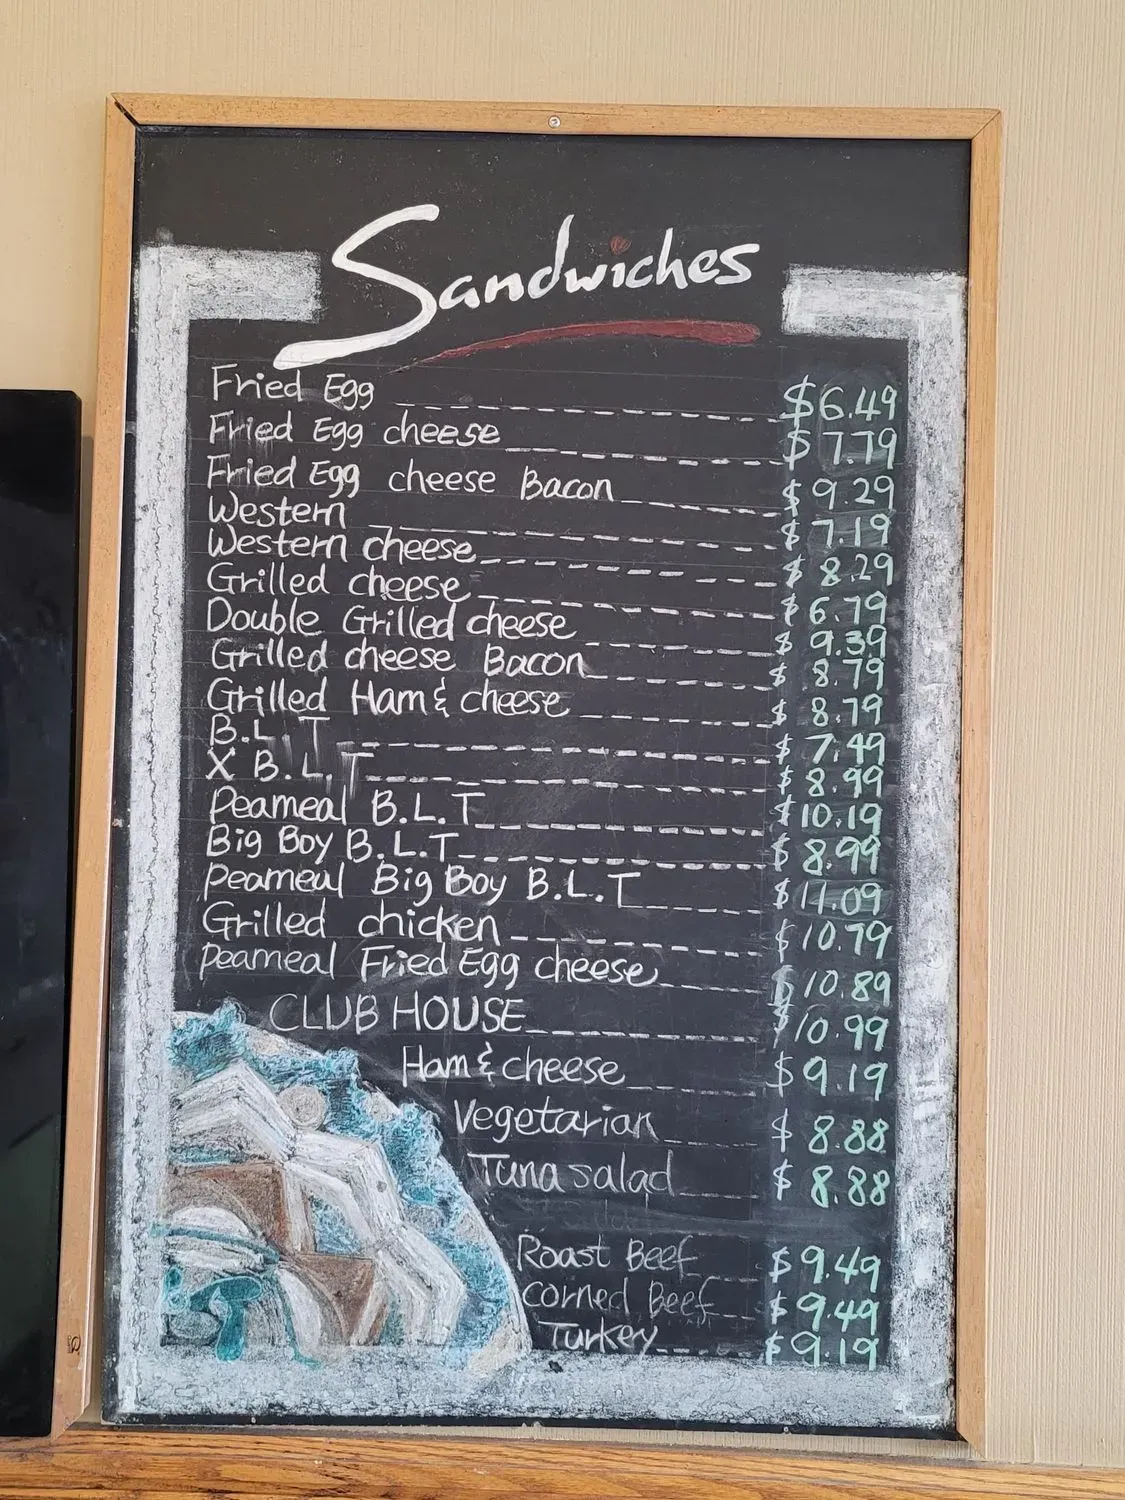 Sandwiches
Fried Egg $6.49
Fried Egg cheese $7.79
Fried Egg cheese Bacon $9.29
Western $7.19
Western cheese $8.29
Grilled cheese $6.79
Double Grilled cheese $9.39
Grilled cheese Bacon $8.79
Grilled Ham & cheese $8.79
B.L.T $7.49
X B.L.T $8.99
Peameal B.L.T $10.19
Big Boy B.L.T $8.99
Peameal Big Boy B.L.T $11.09
Grilled chicken $10.79
Peameal Fried Egg cheese $10.89
CLUB HOUSE $10.99
Ham & cheese $9.19
Vegetarian $8.88
Tuna salad $8.88
Roast Beef $9.49
Corned Beef $9.49
Turkey $9.19